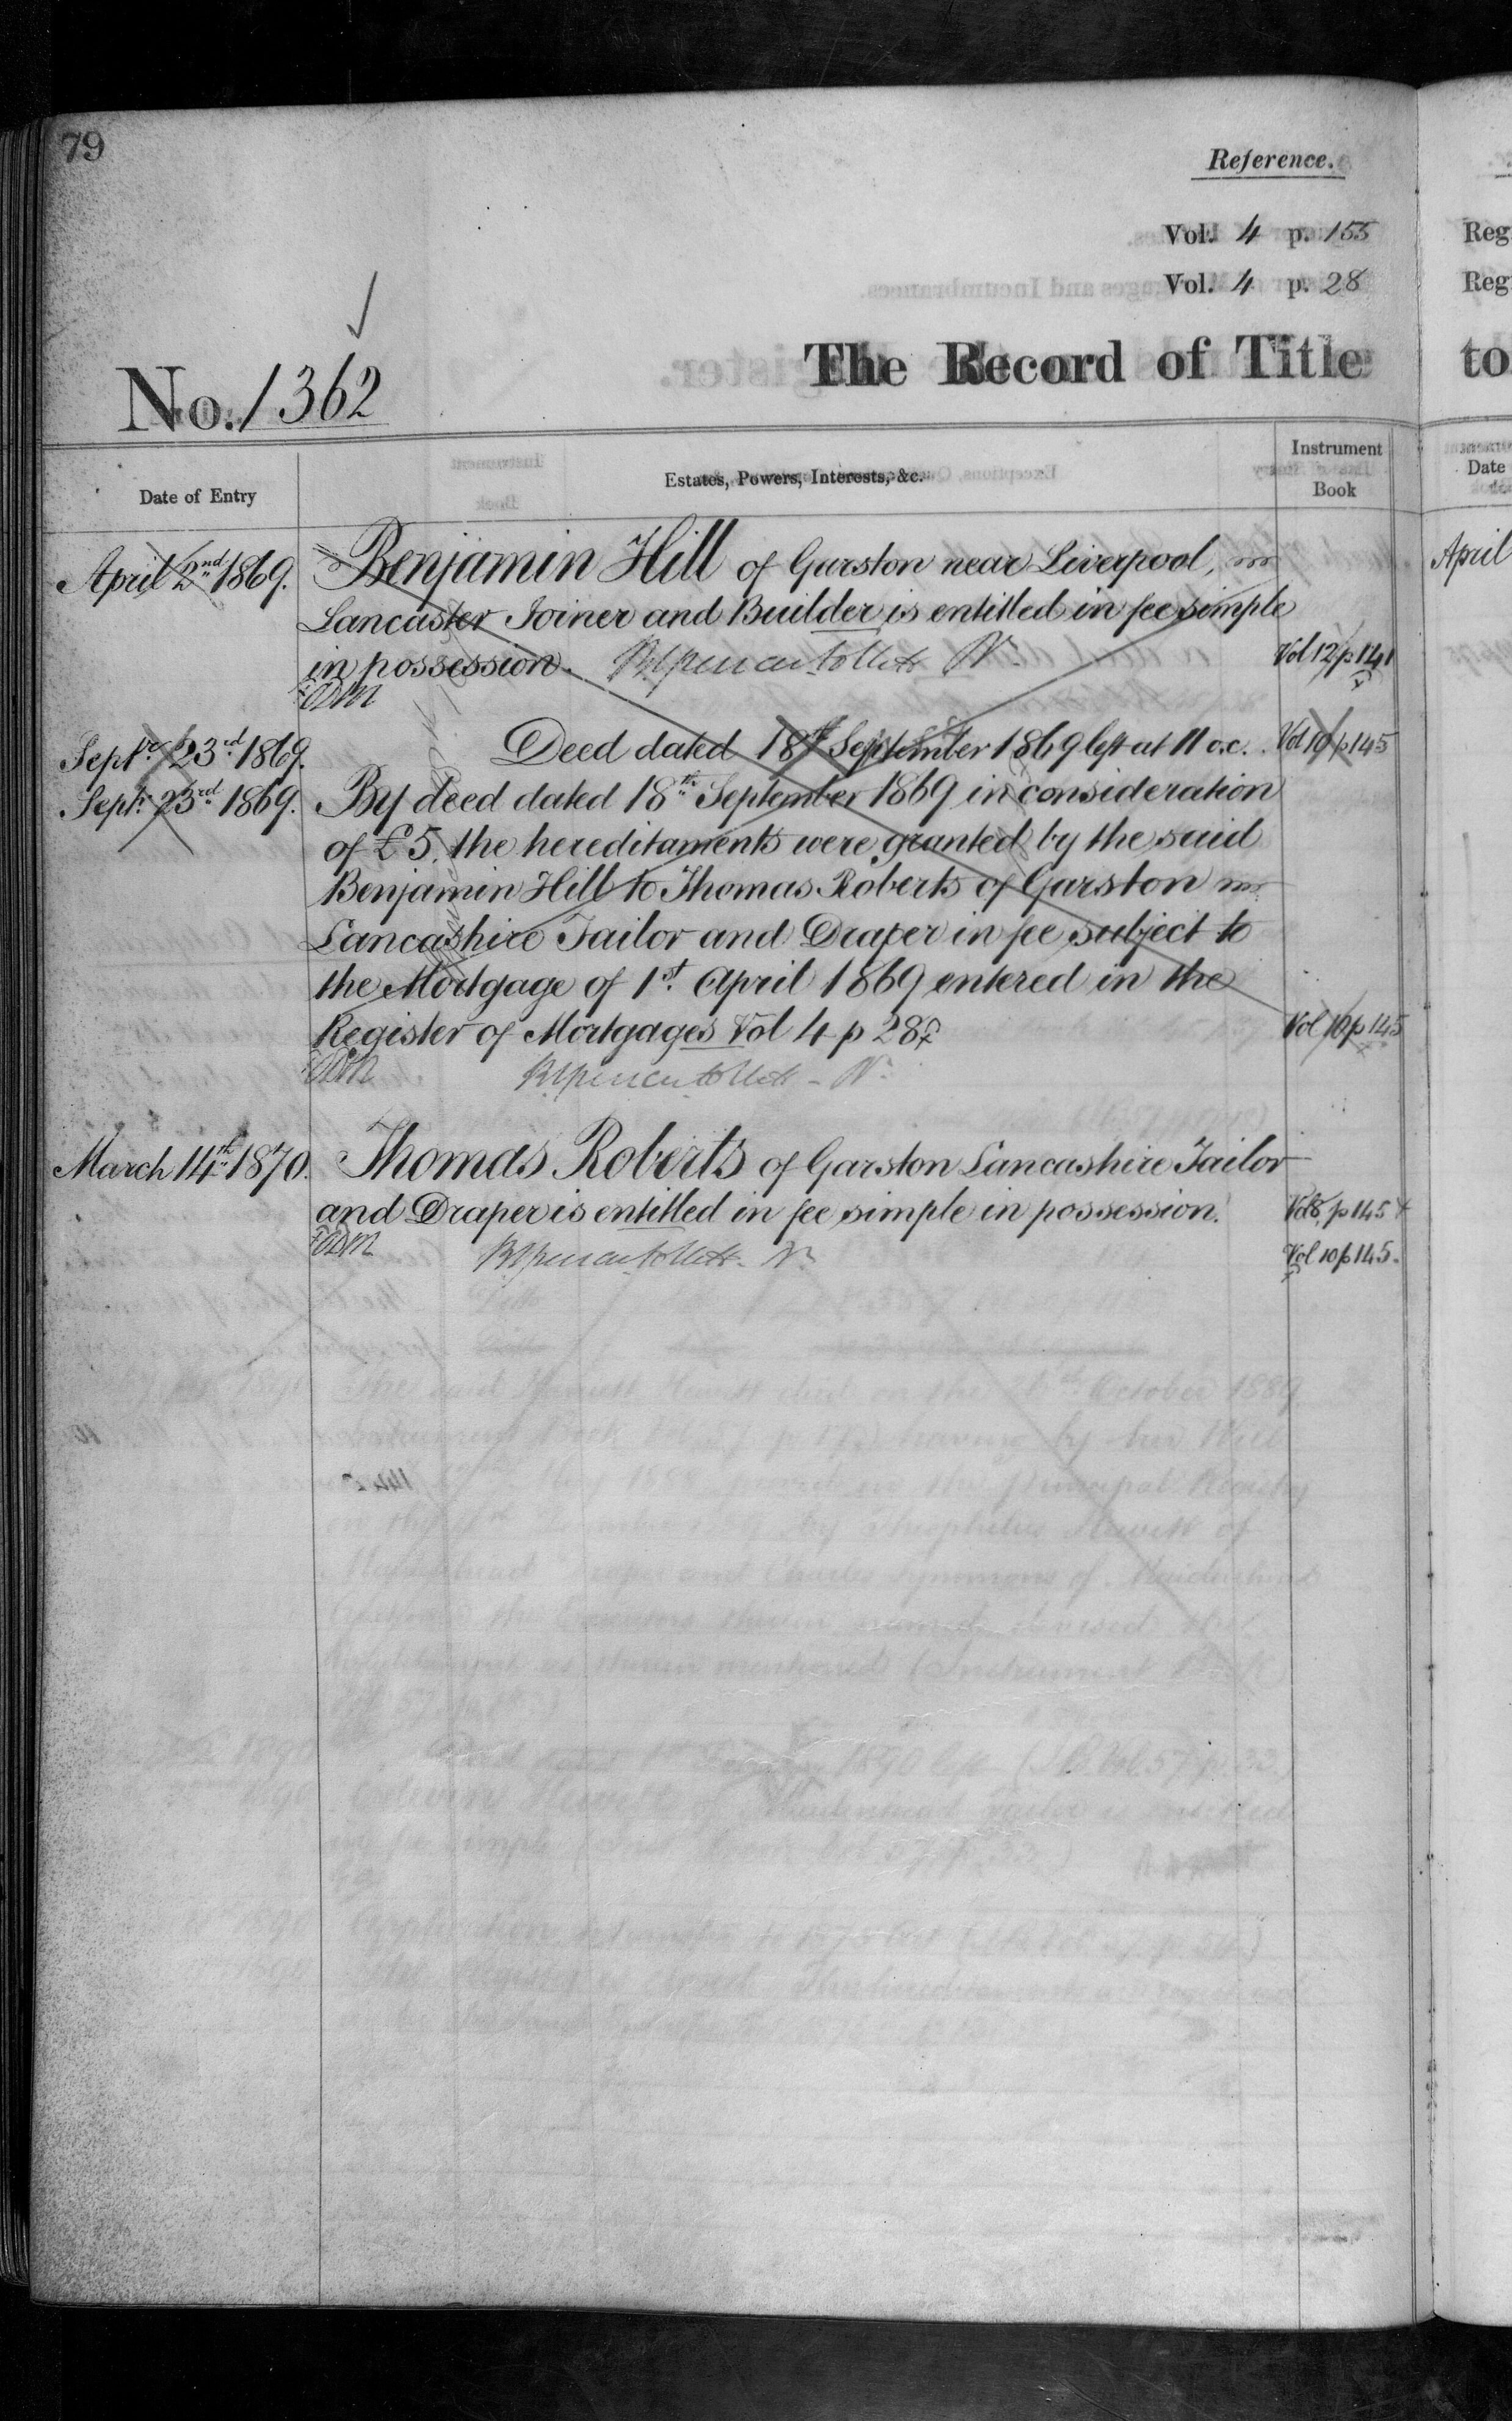 79
Reference.
Vol. 4 p. 155
Vol. 4 p. 28
Reg
Reg
No. 1362
The Record of Title
to
Date of Entry
Estates, Powers, Interests, &c.
Instrument
Book
Date
April 2nd 1869.
Benjamin Hill of Garston near Liverpool, in
April
Lancaster Joiner and Builder is entitled in fee simple
in possession.
Vol 12 p 141
Septr. 23rd 1869.
Deed dated 18th September 1869 left at 11 o.c.
Vol 10 p 145
Septr. 23rd 1869.
By deed dated 18th September 1869 in consideration
of £5, the hereditaments were granted by the said
Benjamin Hill to Thomas Roberts of Garston in
Lancashire Tailor and Draper in fee subject to
the Mortgage of 1st April 1869 entered in the
Register of Mortgages Vol 4 p 28
Vol 10 p 145
March 14th 1870.
Thomas Roberts of Garston Lancashire Tailor
and Draper is entitled in fee simple in possession.
Vol 8, p 145
Vol 10 p 145.